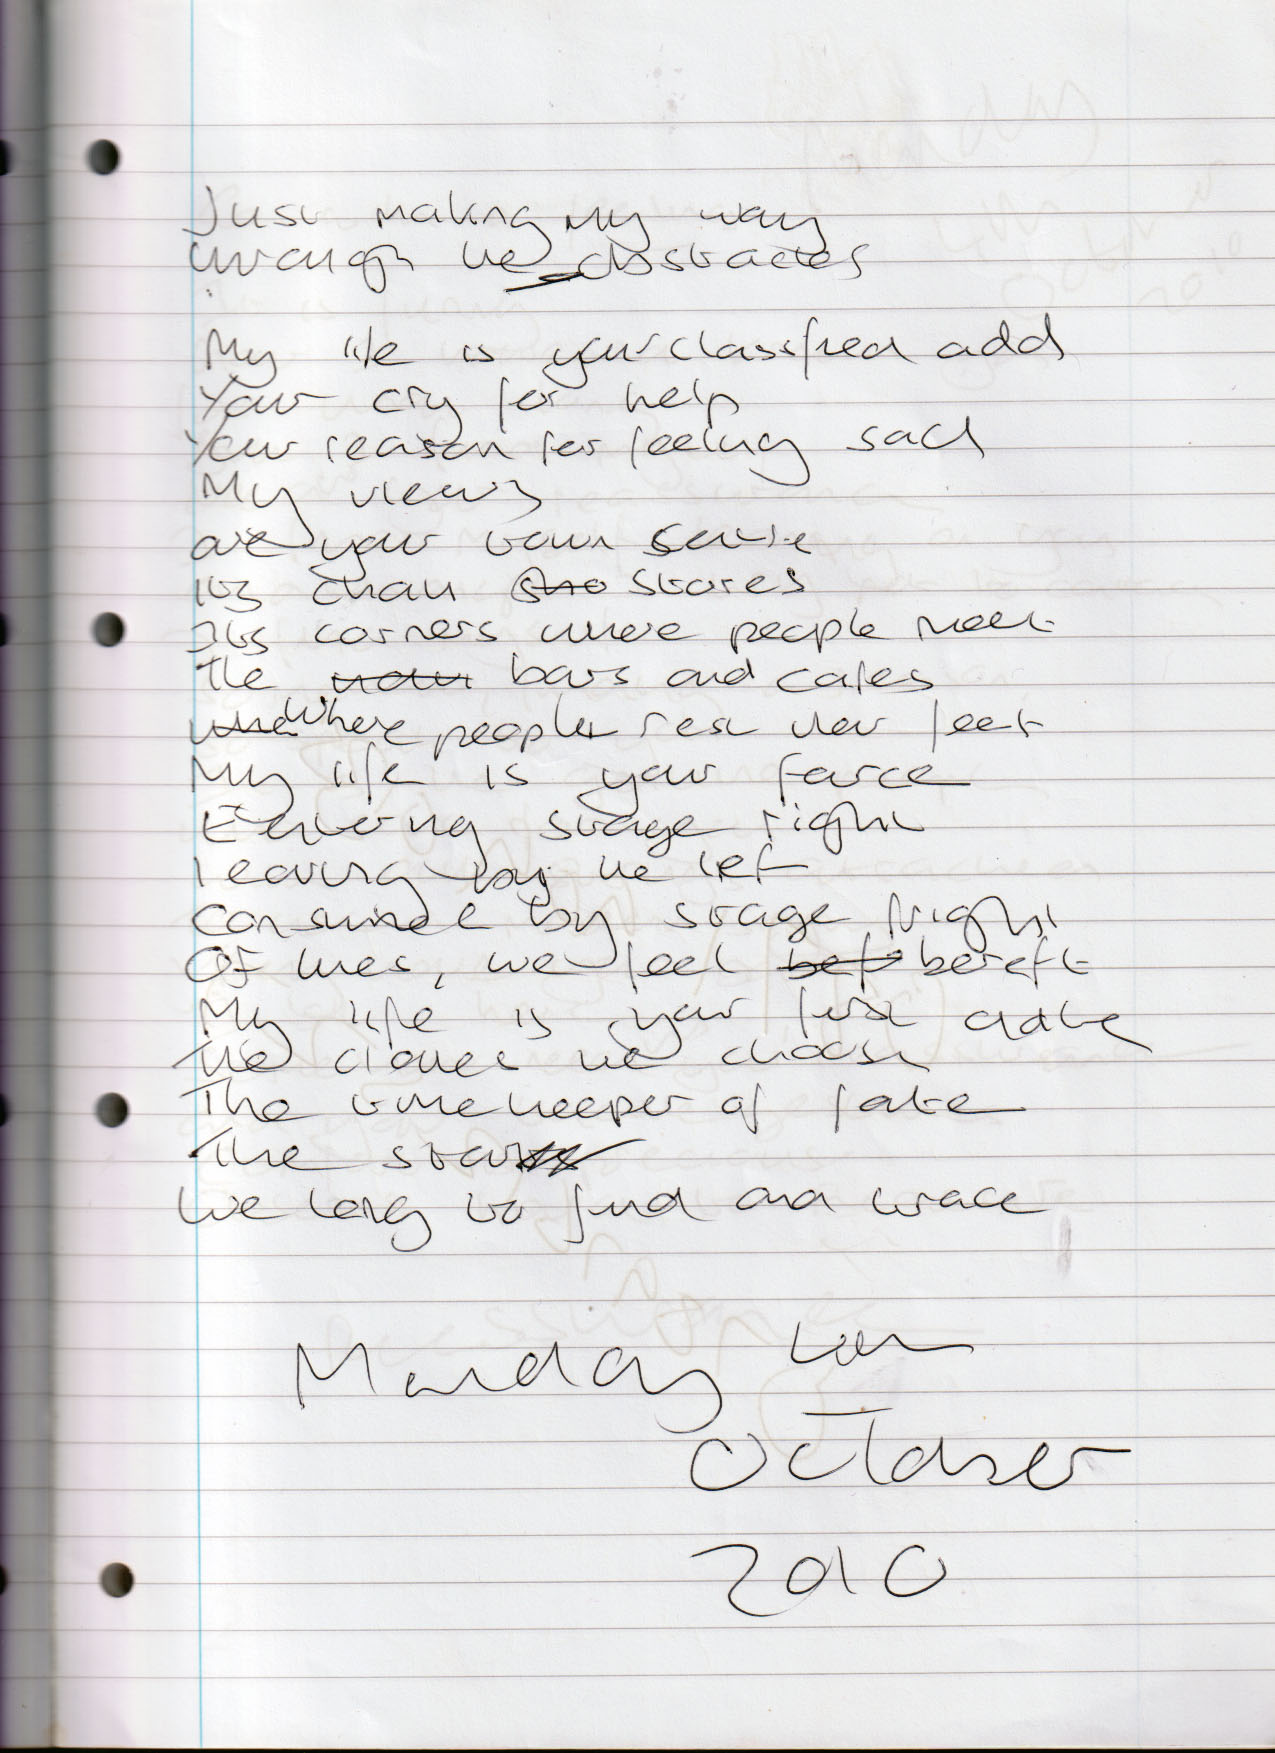 Just making my way
through the obstacles
My life is your classified add
Your cry for help
Your reason for feeling sad
My views
are your town
its chain stores
Its corners where people meet
The bars and cafes
Where people rest their feet
My life is your farce
Entering stage right
leaving by the left
Consumed by stage fright
Of lines, we feel bereft
My life is your first date
The clothes we choose
The timekeeper of fate
The
We long to find and trace
Monday
October
2010